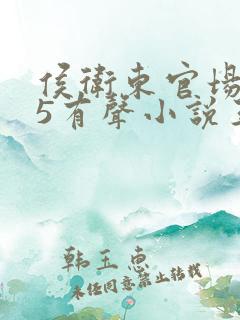 侯衛東官場
5有聲小說
韓玉惠
未任同意禁止转载